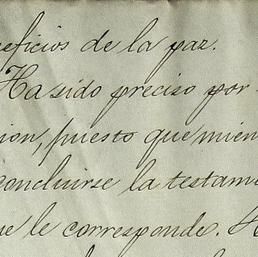 eficios de la paz.
Ha sido preciso por
ion, puesto que mien
concluirse la testam
ue le corresponde. H